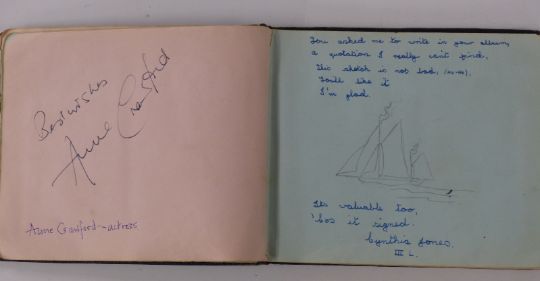 Best wishes
Anne Crawford
Anne Crawford - actress
You asked me to write in your album,
a quotation I really can't find,
This sketch is not bad, (no-no),
You'll like it
I'm glad.
Its valuable too,
'cos it signed.
Cynthia Jones.
III L.